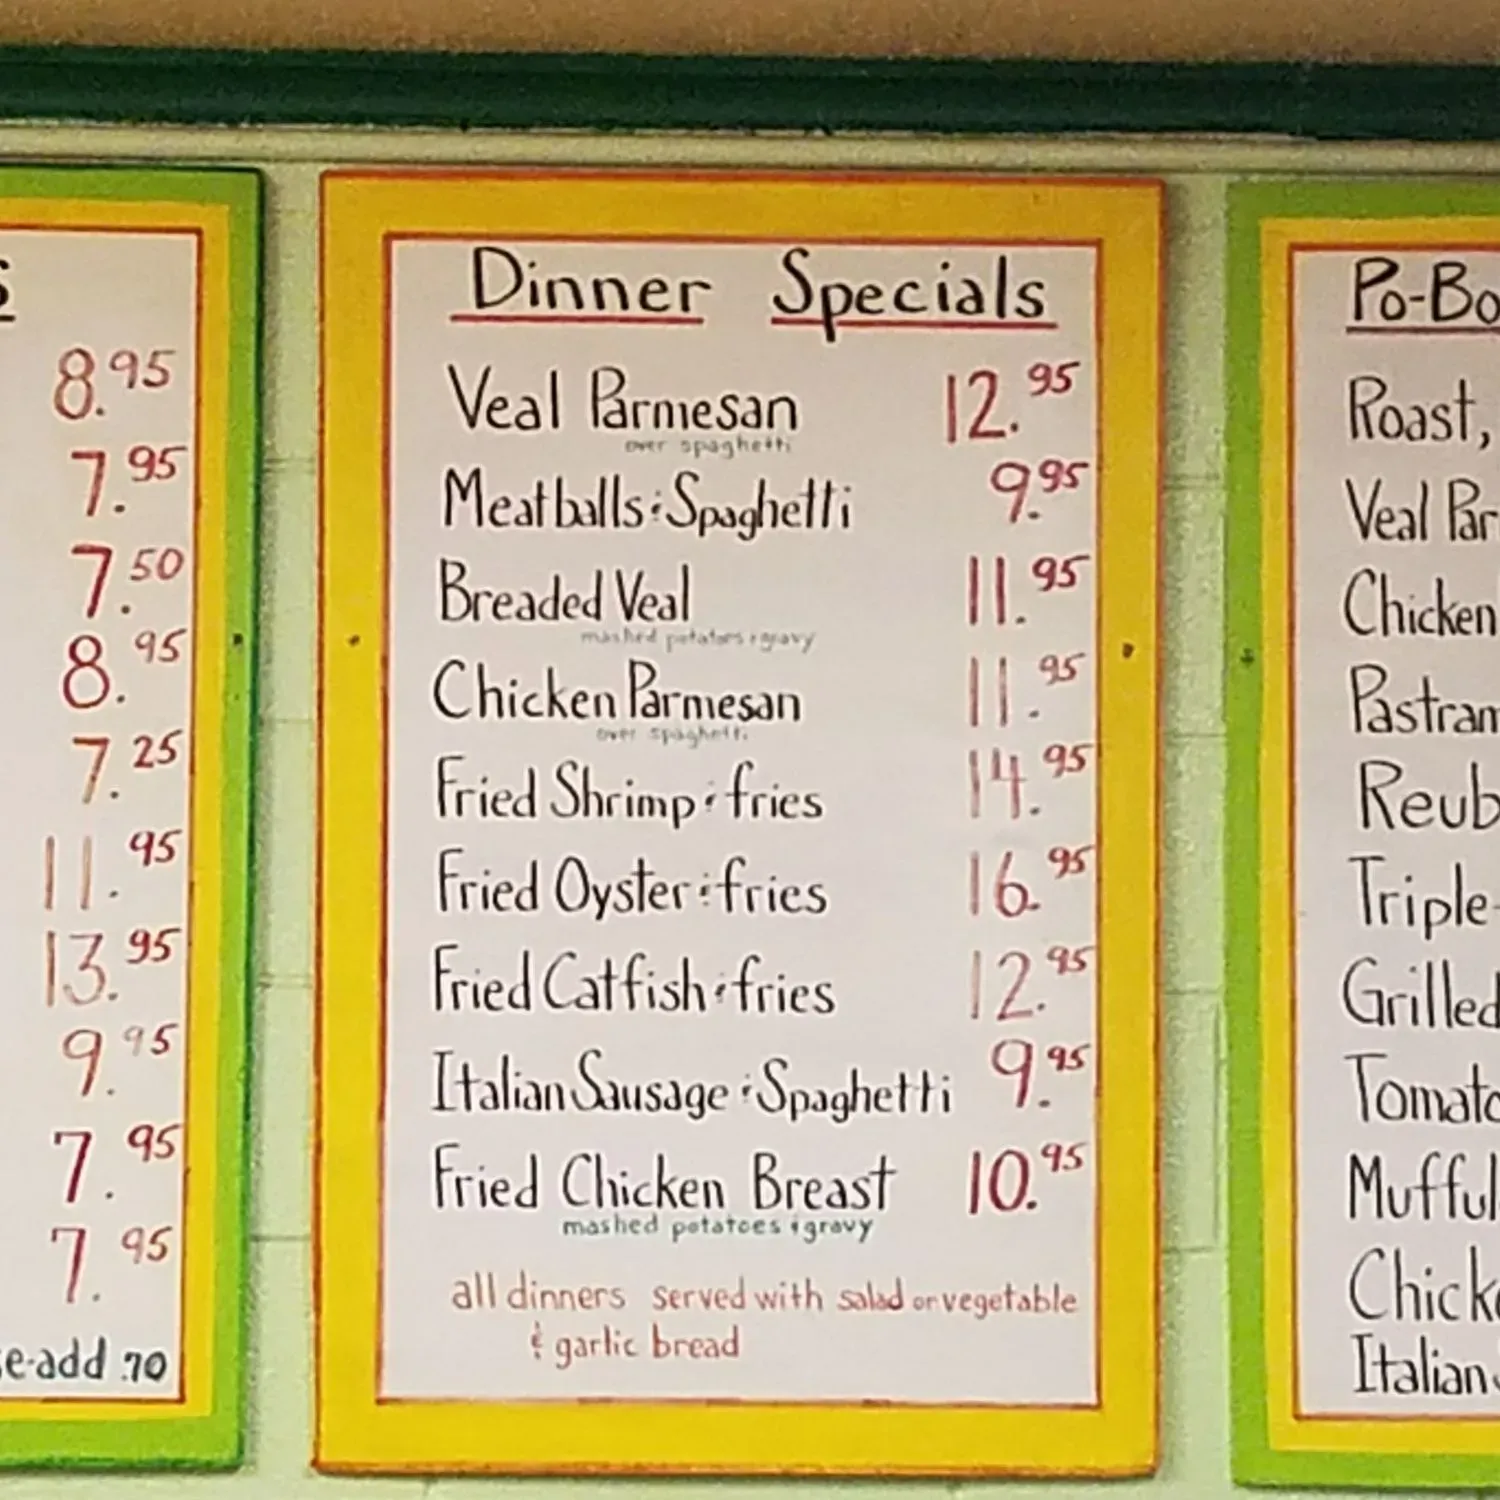 s
8.95
7.95
7.50
8.95
7.25
11.95
13.95
9.95
7.95
7.95
e-add .70
Dinner Specials
Veal Parmesan 12.95
over spaghetti
Meatballs & Spaghetti 9.95
Breaded Veal 11.95
mashed potatoes & gravy
Chicken Parmesan 11.95
over spaghetti
Fried Shrimp & fries 14.95
Fried Oyster & fries 16.95
Fried Catfish & fries 12.95
Italian Sausage & Spaghetti 9.95
Fried Chicken Breast 10.95
mashed potatoes & gravy
all dinners served with salad or vegetable
& garlic bread
Po-Bo
Roast,
Veal Par
Chicken
Pastram
Reub
Triple-
Grilled
Tomato
Mufful
Chick
Italian